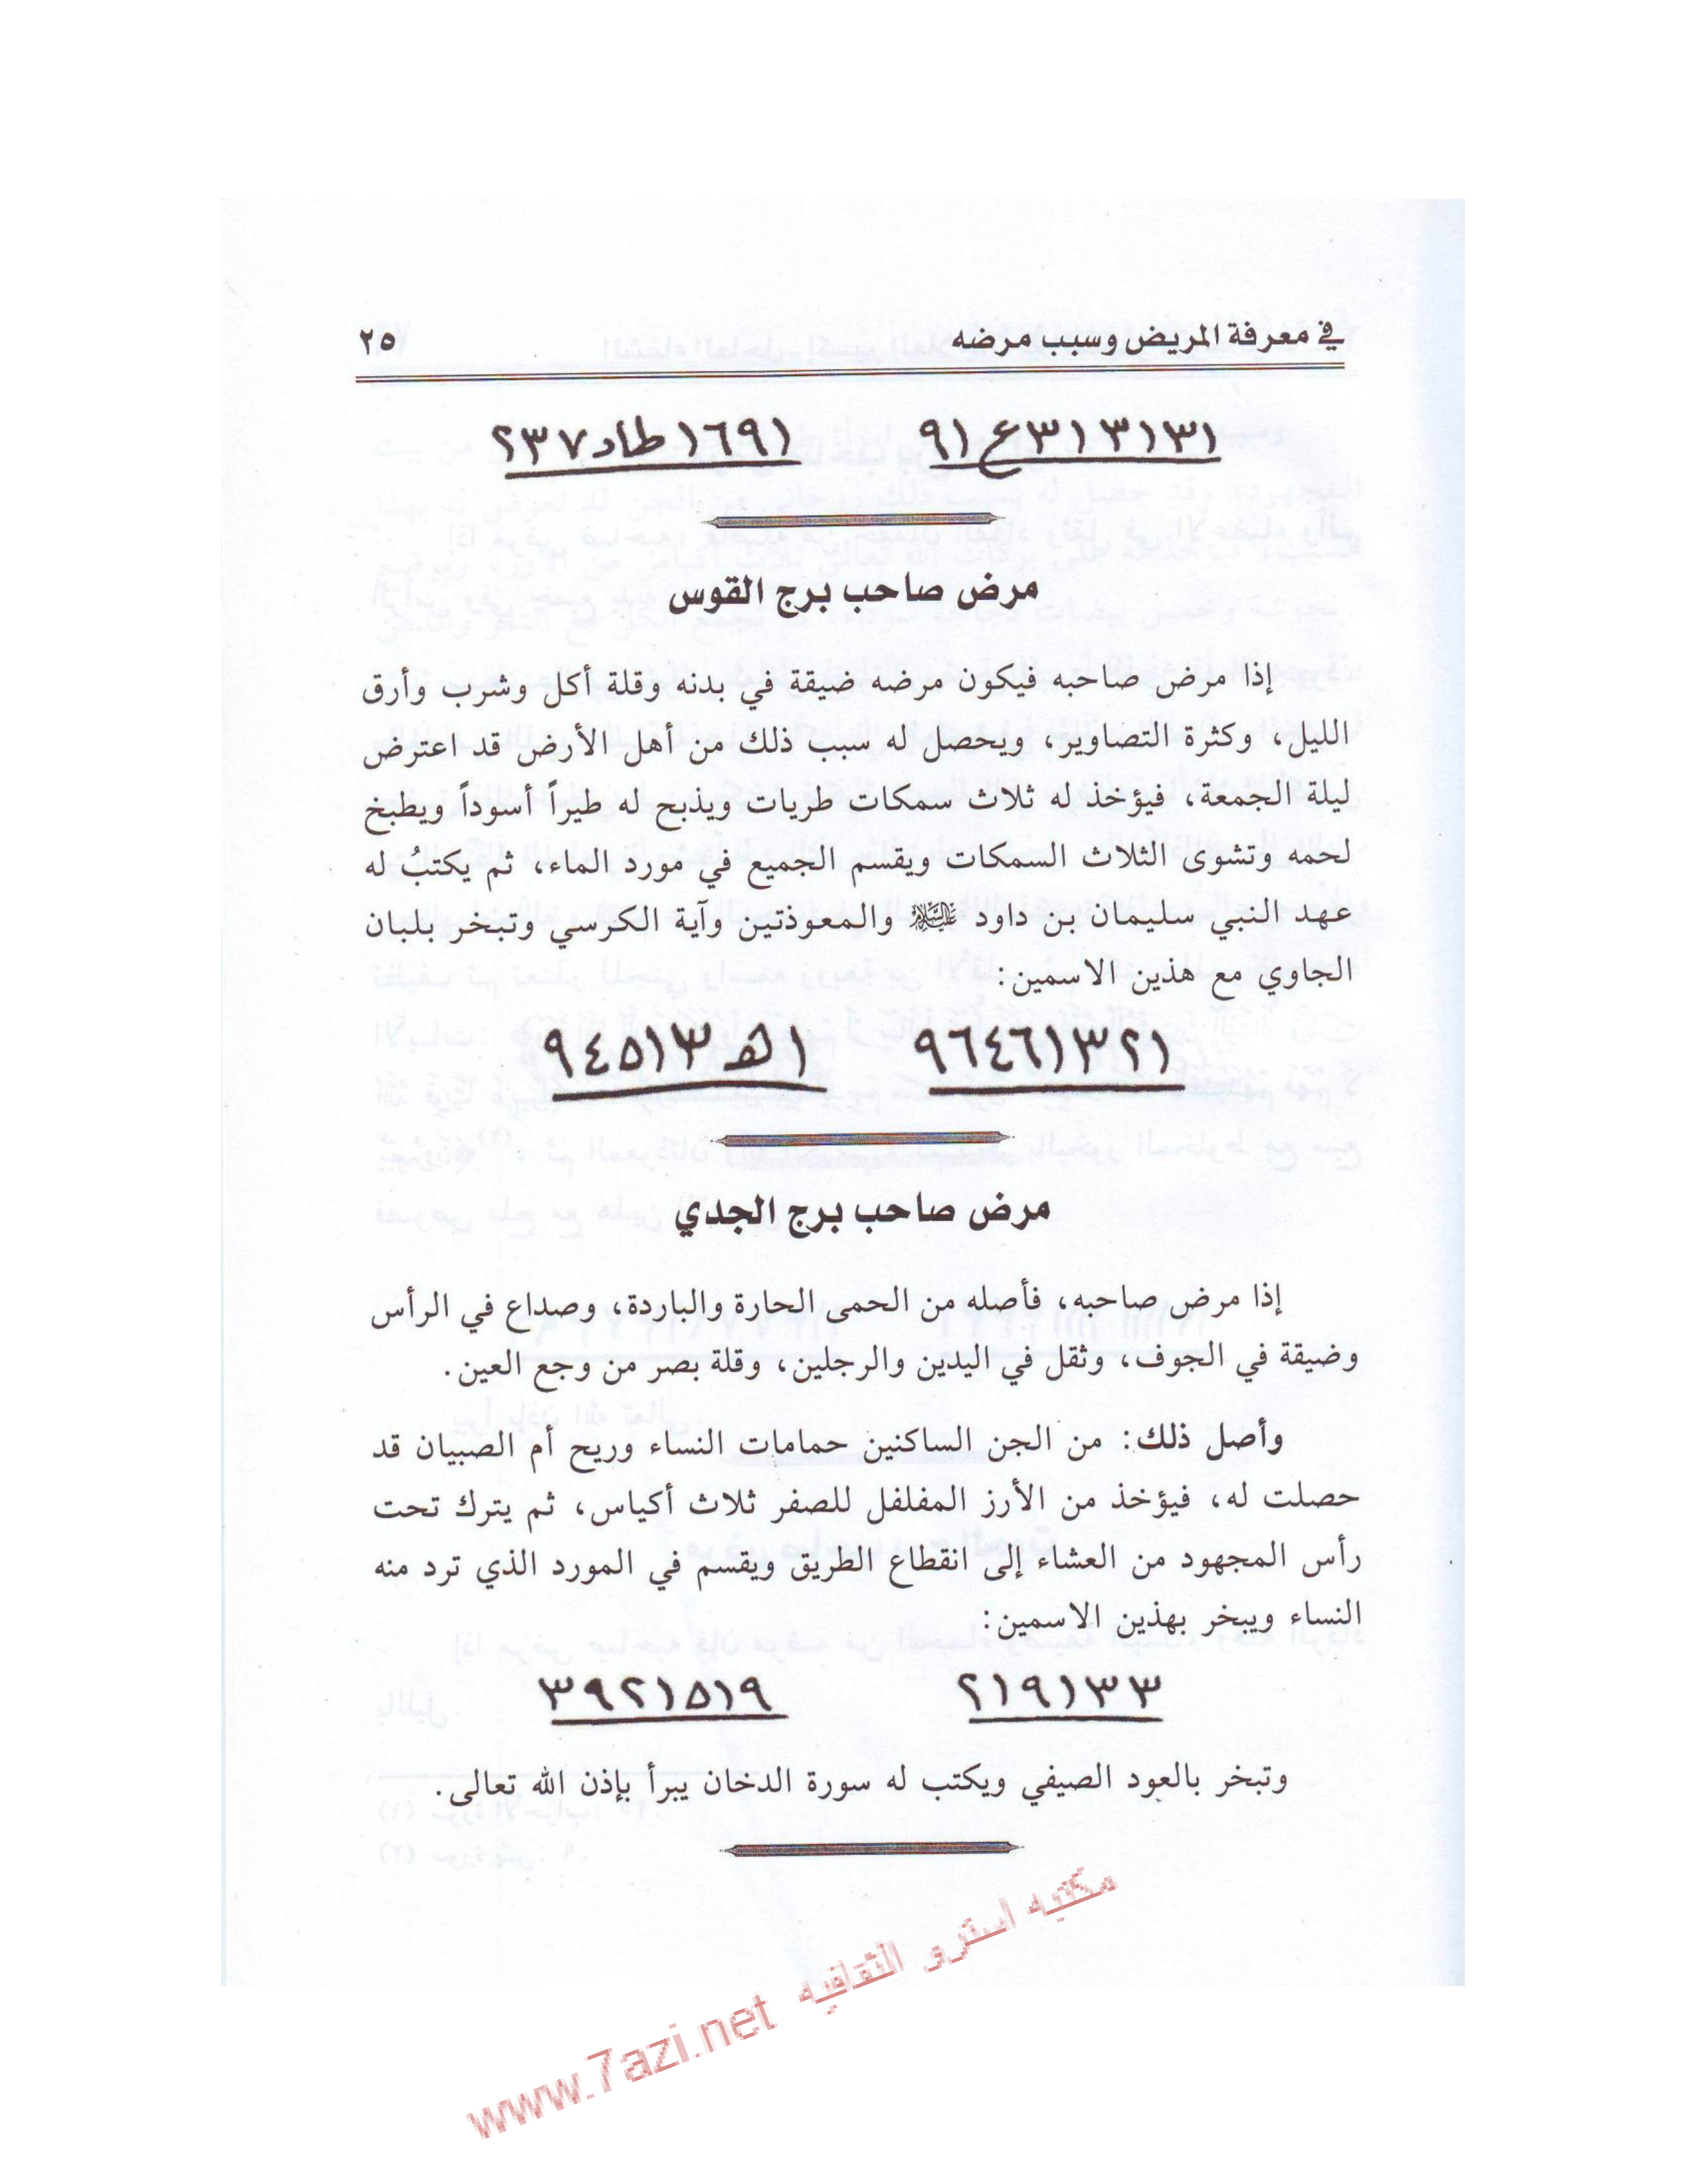 في معرفة المريض وسبب مرضه ٢٥
١٣١٣١٣ع٩١ ١٦٩١طاد٢٣٧
مرض صاحب برج القوس
إذا مرض صاحبه فيكون مرضه ضيقة في بدنه وقلة أكل وشرب وأرق
الليل، وكثرة التصاوير، ويحصل له سبب ذلك من أهل الأرض قد اعترض
ليلة الجمعة، فيؤخذ له ثلاث سمكات طريات ويذبح له طيراً أسوداً ويطبخ
لحمه وتشوى الثلاث السمكات ويقسم الجميع في مورد الماء، ثم يكتبُ له
عهد النبي سليمان بن داود عليه السلام والمعوذتين وآية الكرسي وتبخر بلبان
الجاوي مع هذين الاسمين:
٩٦٤٦١٣٢١ ١هـ٩٤٥١٣
مرض صاحب برج الجدي
إذا مرض صاحبه، فأصله من الحمى الحارة والباردة، وصداع في الرأس
وضيقة في الجوف، وثقل في اليدين والرجلين، وقلة بصر من وجع العين.
وأصل ذلك: من الجن الساكنين حمامات النساء وريح أم الصبيان قد
حصلت له، فيؤخذ من الأرز المفلفل للصفر ثلاث أكياس، ثم يترك تحت
رأس المجهود من العشاء إلى انقطاع الطريق ويقسم في المورد الذي ترد منه
النساء ويبخر بهذين الاسمين:
٢١٩١٣٣ ٣٩٢١٥١٩
وتبخر بالعود الصيفي ويكتب له سورة الدخان يبرأ بإذن الله تعالى.
مكتبه استرو الثقافيه www.7azi.net